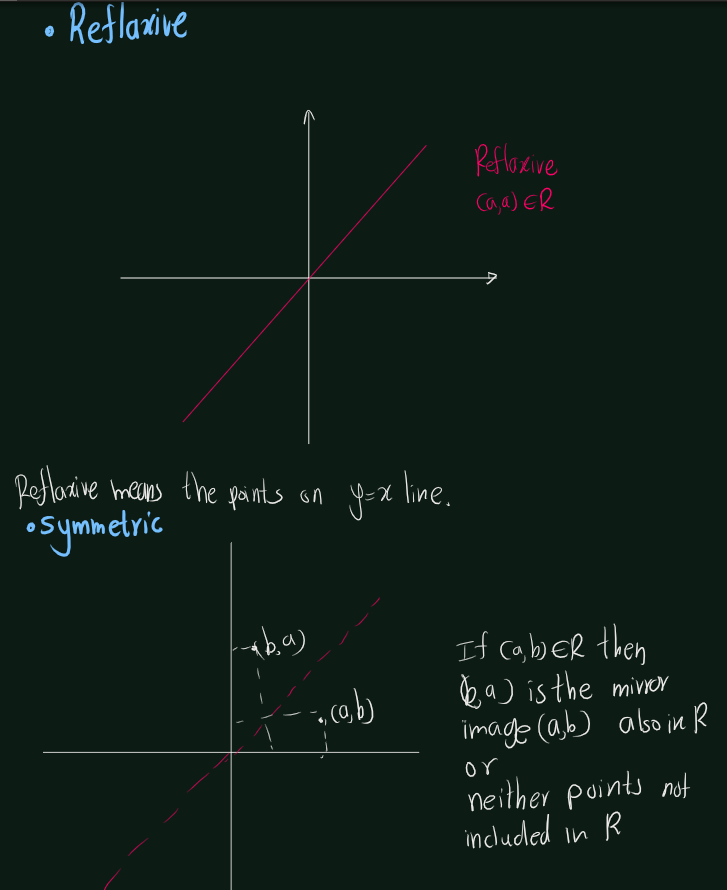 • Reflaxive
Reflaxive
(a,a)∈R
Reflaxive means the points on y=x line.
• Symmetric
(b,a)
(a,b)
If (a,b)∈R then
(b,a) is the mirror
image (a,b) also in R
or
neither points not
included in R